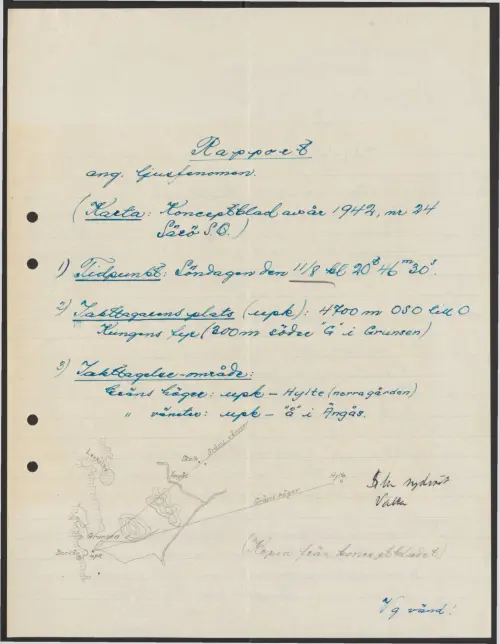 Rapport
ang. ljusfenomen.
(Karta: Konceptblad av år 1942, nr 24
Särö S.O.)
1) Tidpunkt: Söndagen den 11/8 kl 20t 46m 30s.
2) Iakttagarens plats (upk): 4700 m OSO till O
Kungens fyr (300 m söder "G" i Grunsen)
3) Iakttagelse-område:
Gräns höger: upk – Hylte (norragården)
" vänster: upk – "Ä" i Ängås.
Gräns vänster
Ängås
Hylte
Gräns höger
upk
Valla
(Kopia från konceptbladet)
V g vänd!